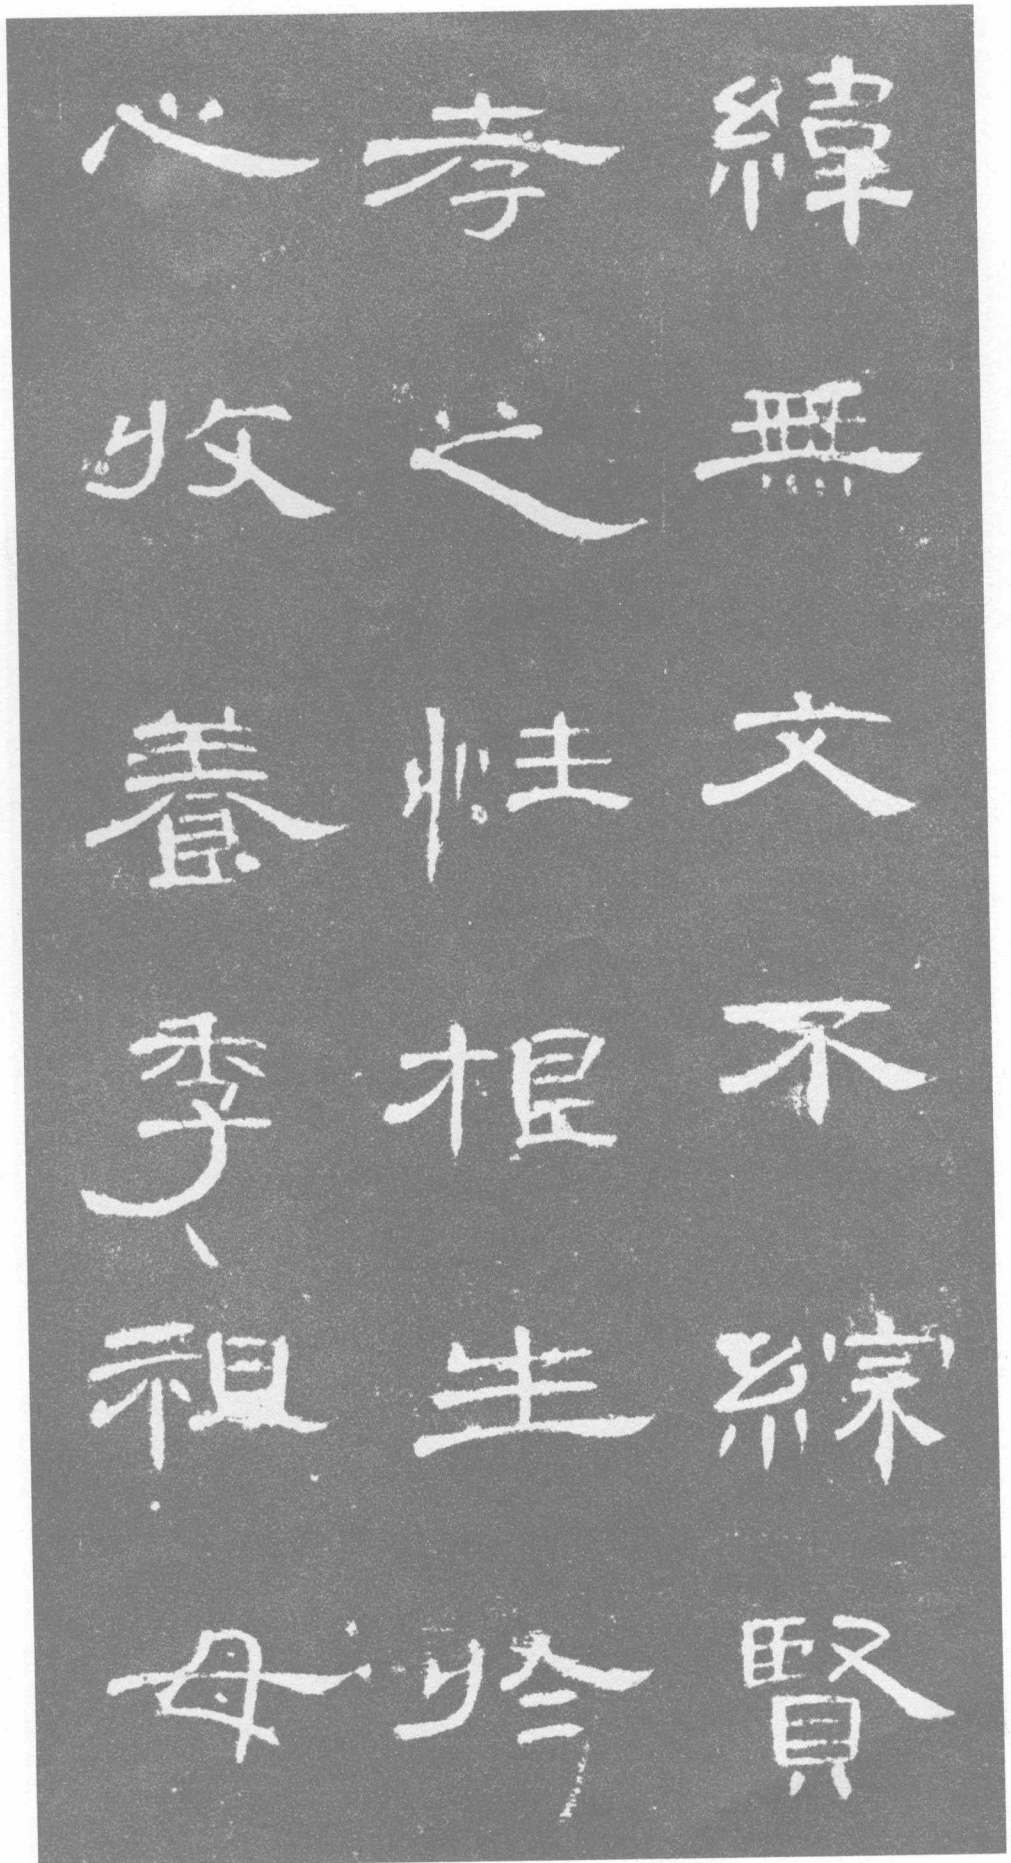 緯無文不綜賢
孝之性根生扵
心收養季祖母